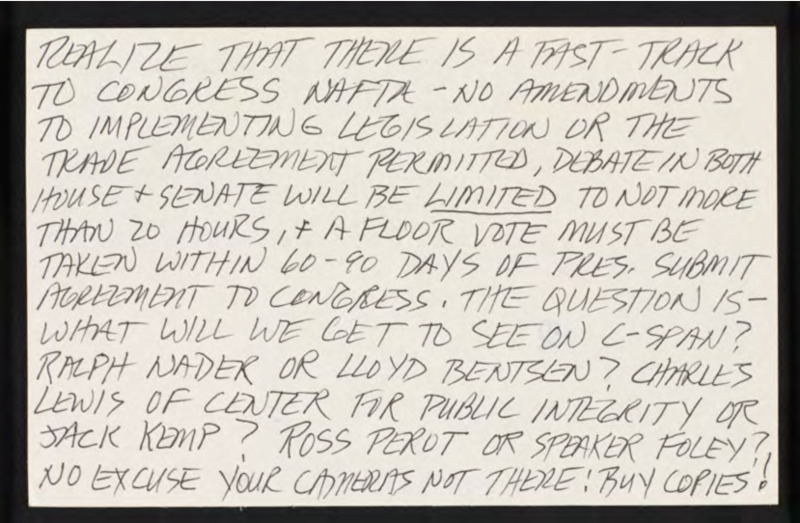 REALIZE THAT THERE IS A FAST-TRACK
TO CONGRESS NAFTA - NO AMENDMENTS
TO IMPLEMENTING LEGISLATION OR THE
TRADE AGREEMENT PERMITTED, DEBATE IN BOTH
HOUSE + SENATE WILL BE LIMITED TO NOT MORE
THAN 20 HOURS, + A FLOOR VOTE MUST BE
TAKEN WITHIN 60-90 DAYS OF PRES. SUBMIT
AGREEMENT TO CONGRESS. THE QUESTION IS -
WHAT WILL WE GET TO SEE ON C-SPAN?
RALPH NADER OR LLOYD BENTSEN? CHARLES
LEWIS OF CENTER FOR PUBLIC INTEGRITY OR
JACK KEMP? ROSS PEROT OR SPEAKER FOLEY?
NO EXCUSE YOUR CAMERAS NOT THERE! BUY COPIES!!